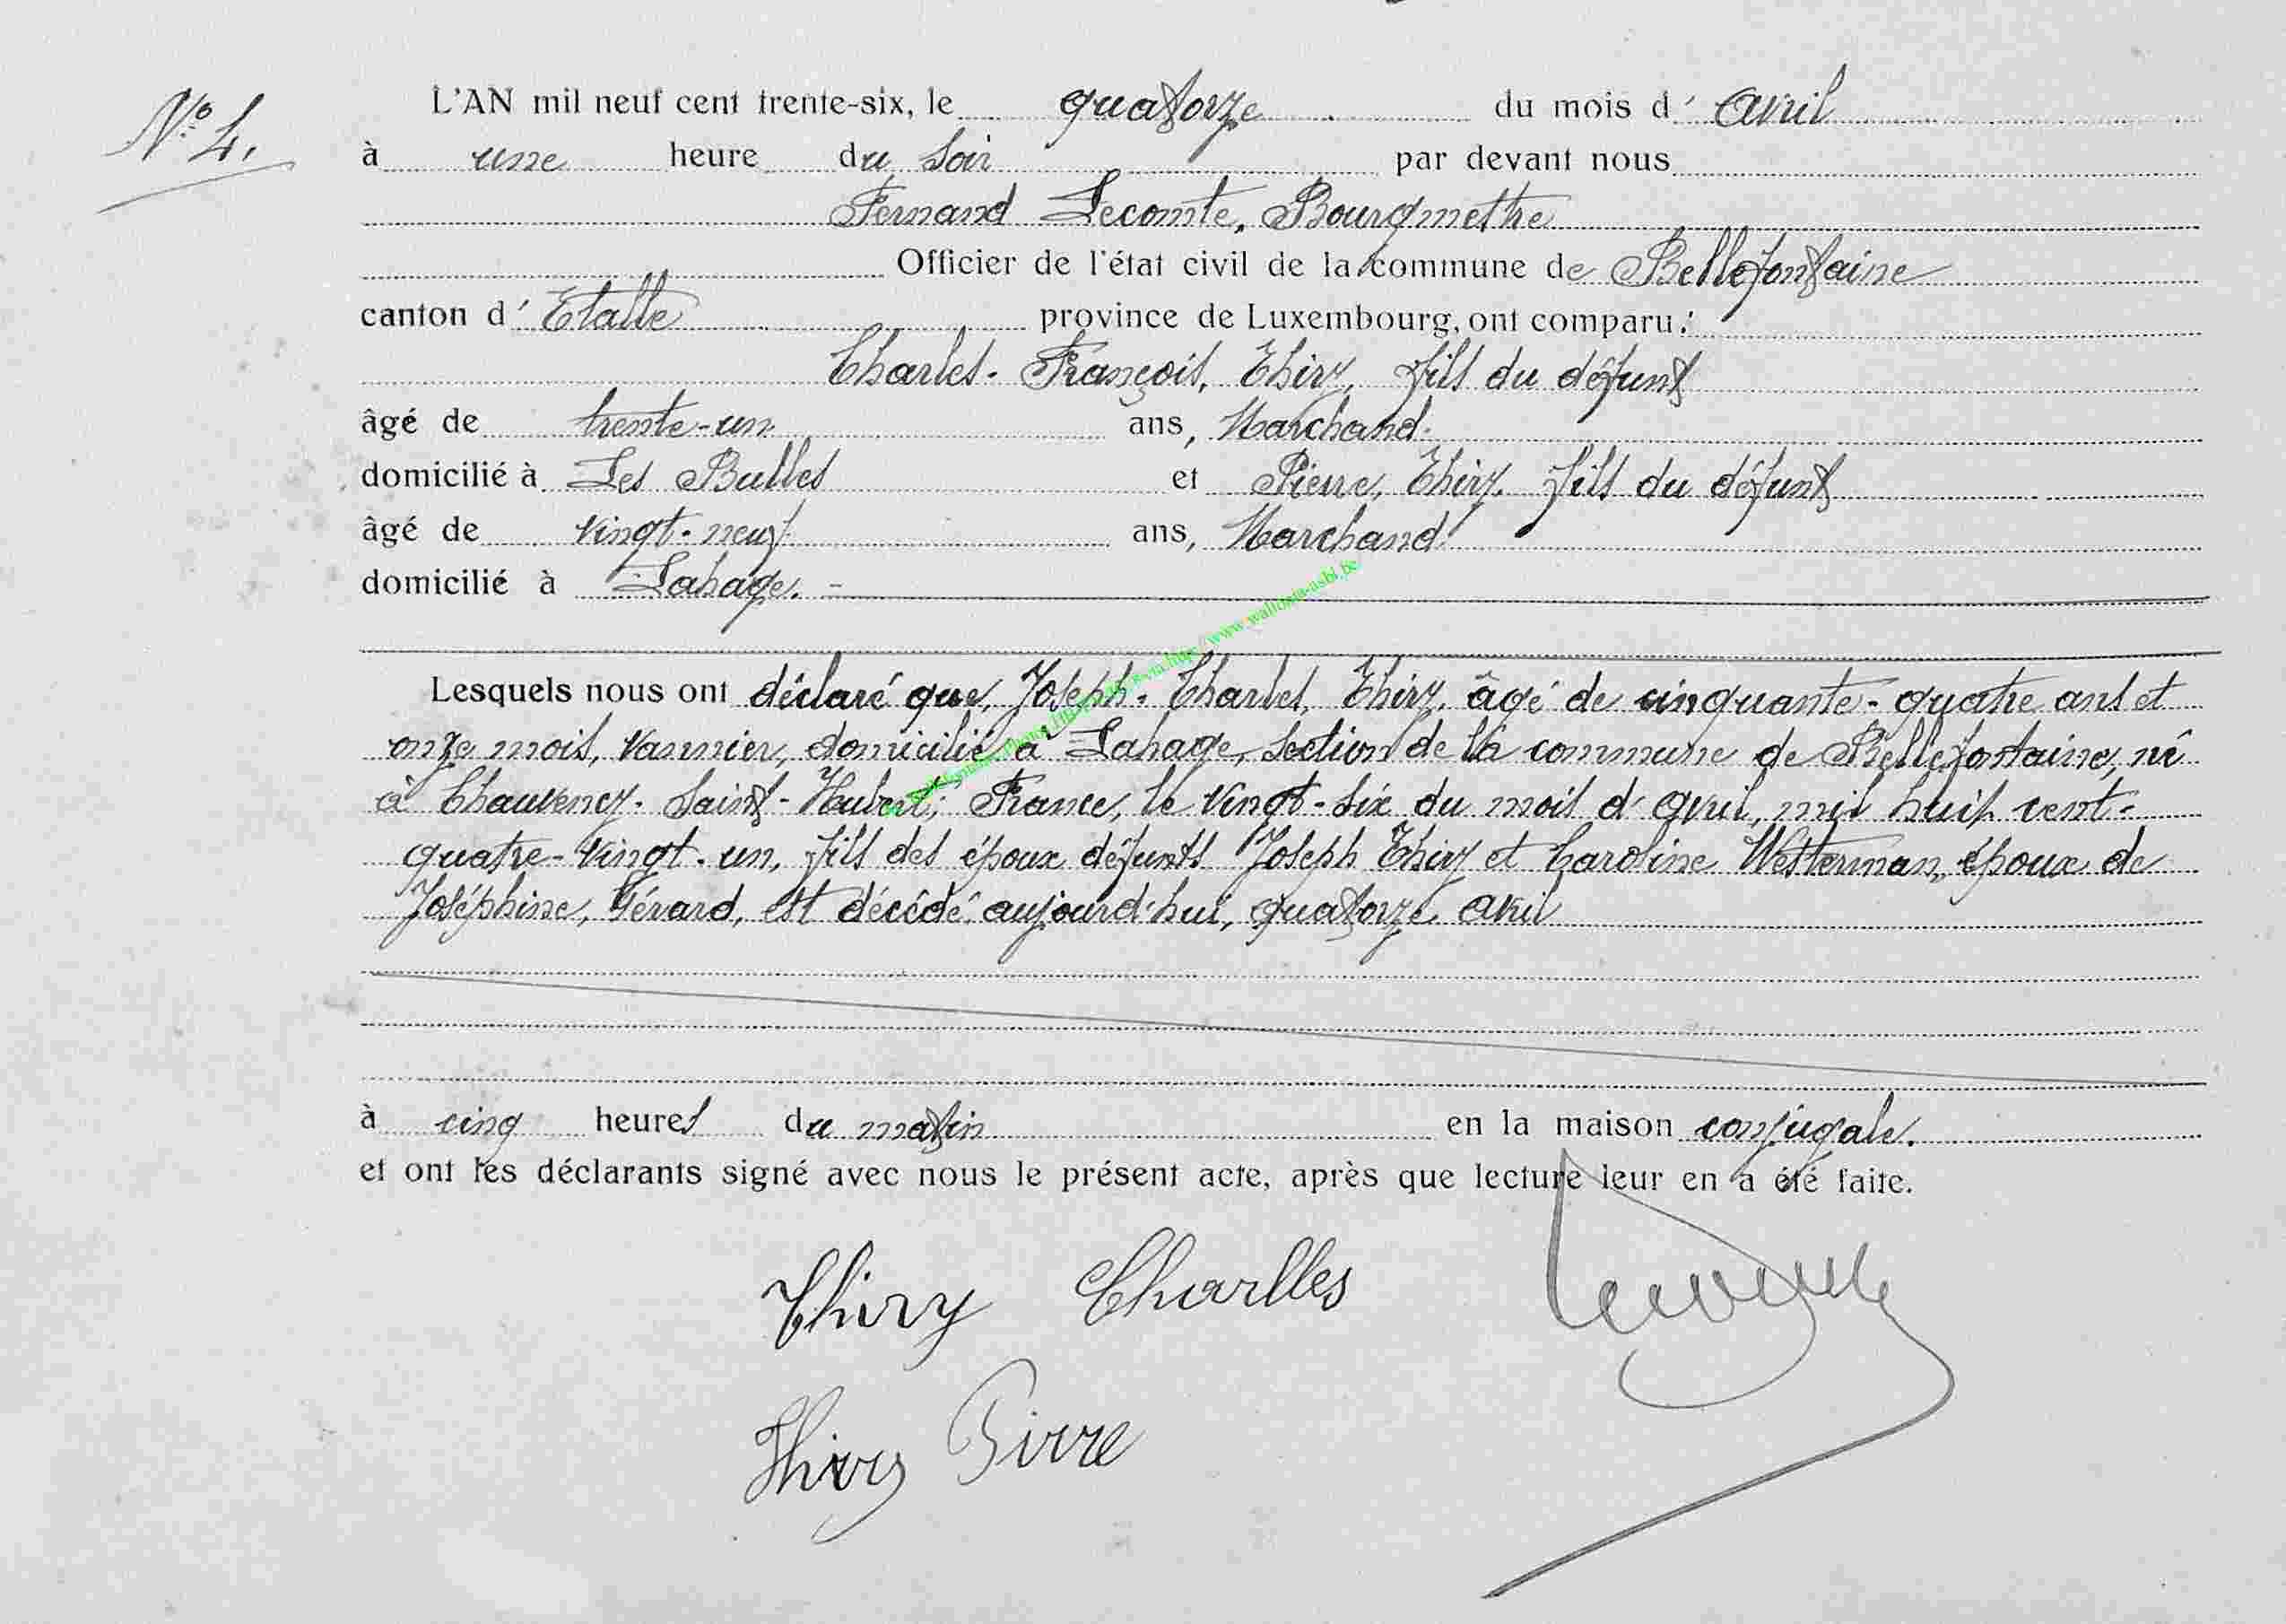 N° 4.
L'AN mil neuf cent trente-six, le quatorze du mois d' Avril
à une heure du soir par devant nous
Fernand Lecomte, Bourgmettre
Officier de l'état civil de la commune de Bellefontaine
canton d' Etalle province de Luxembourg, ont comparu :
Charles-François, Thiry, fils du défunt
âgé de trente-un ans, Marchand.
domicilié à Les Bulles et Pierre, Thiry, fils du défunt
âgé de vingt-neuf ans, Marchand
domicilié à Lahage. -
Lesquels nous ont déclaré que, Joseph-Charles, Thiry, âgé de cinquante-quatre ans et
onze mois, vannier, domicilié à Lahage, section de la commune de Bellefontaine, né
à Chauvency-Saint-Hubert, France, le vingt-six du mois d'avril, mil huit cent-
quatre-vingt-un, fils des époux défunts Joseph Thiry et Caroline Westerman, époux de
Joséphine, Gérard, est décédé aujourd'hui, quatorze avril
à cinq heures du matin en la maison conjugale.
et ont les déclarants signé avec nous le présent acte, après que lecture leur en a été faite.
Thiry Charlles
Thiry Pirre
www.wallonia-asbl.be